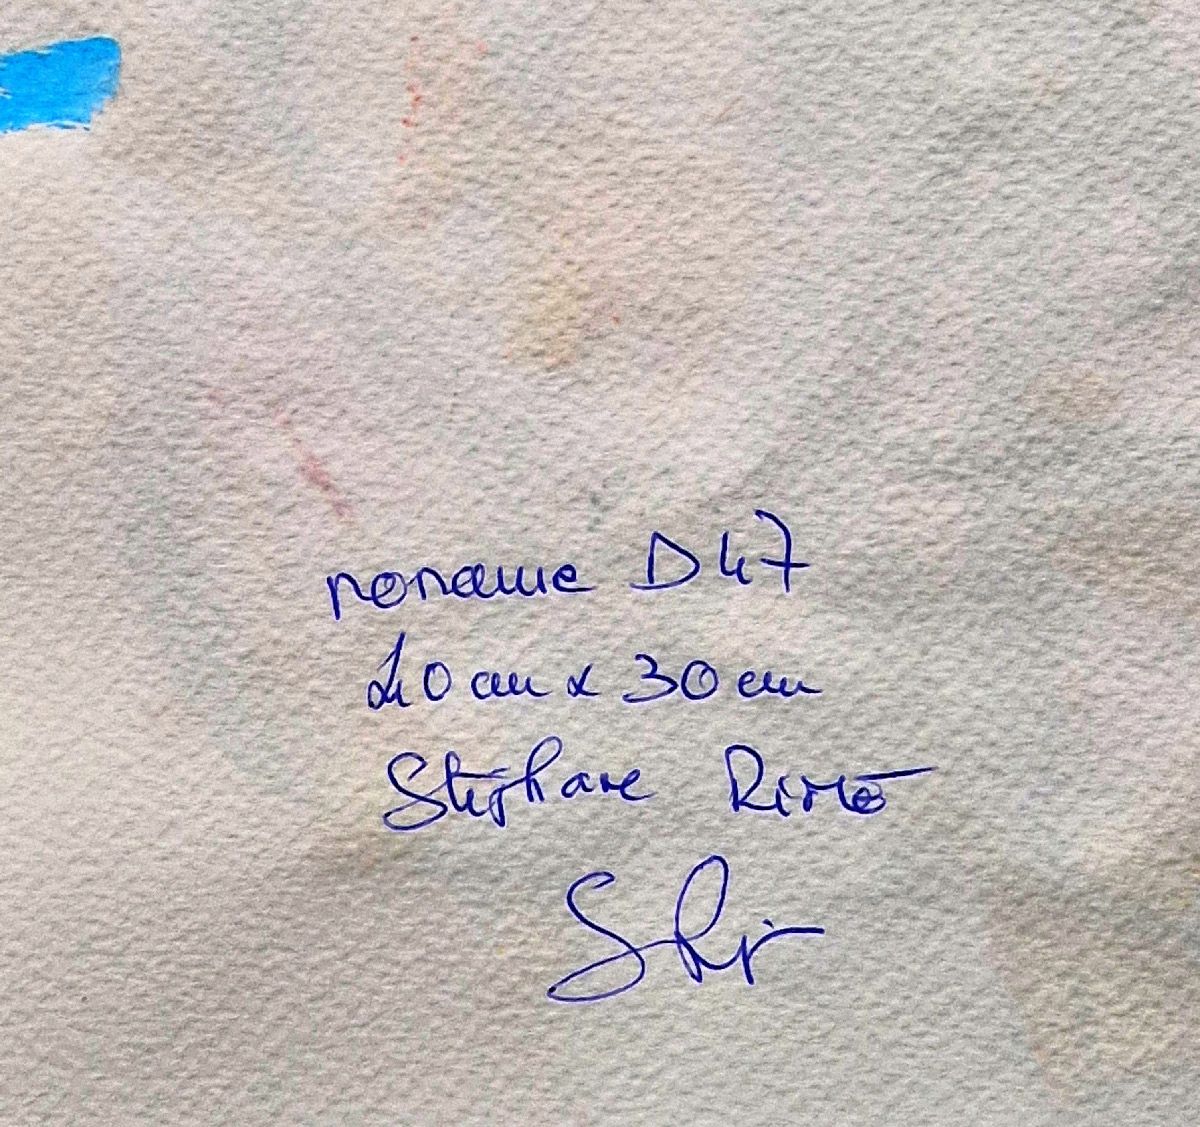 noname D47
40 cm x 30 cm
Stéphane